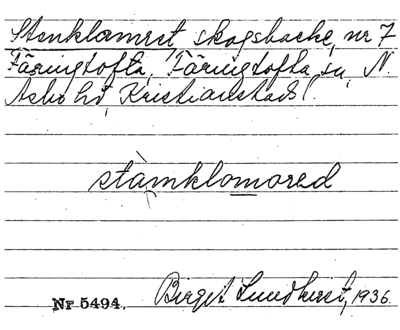 Stenklamret, skogsbacke, nr 7
Färingtofta, Färingtofta sn, N.
Åsbo hd, Kristianstads l.
stàmklomored
Nr 5494. Birgit Lundkvist, 1936.